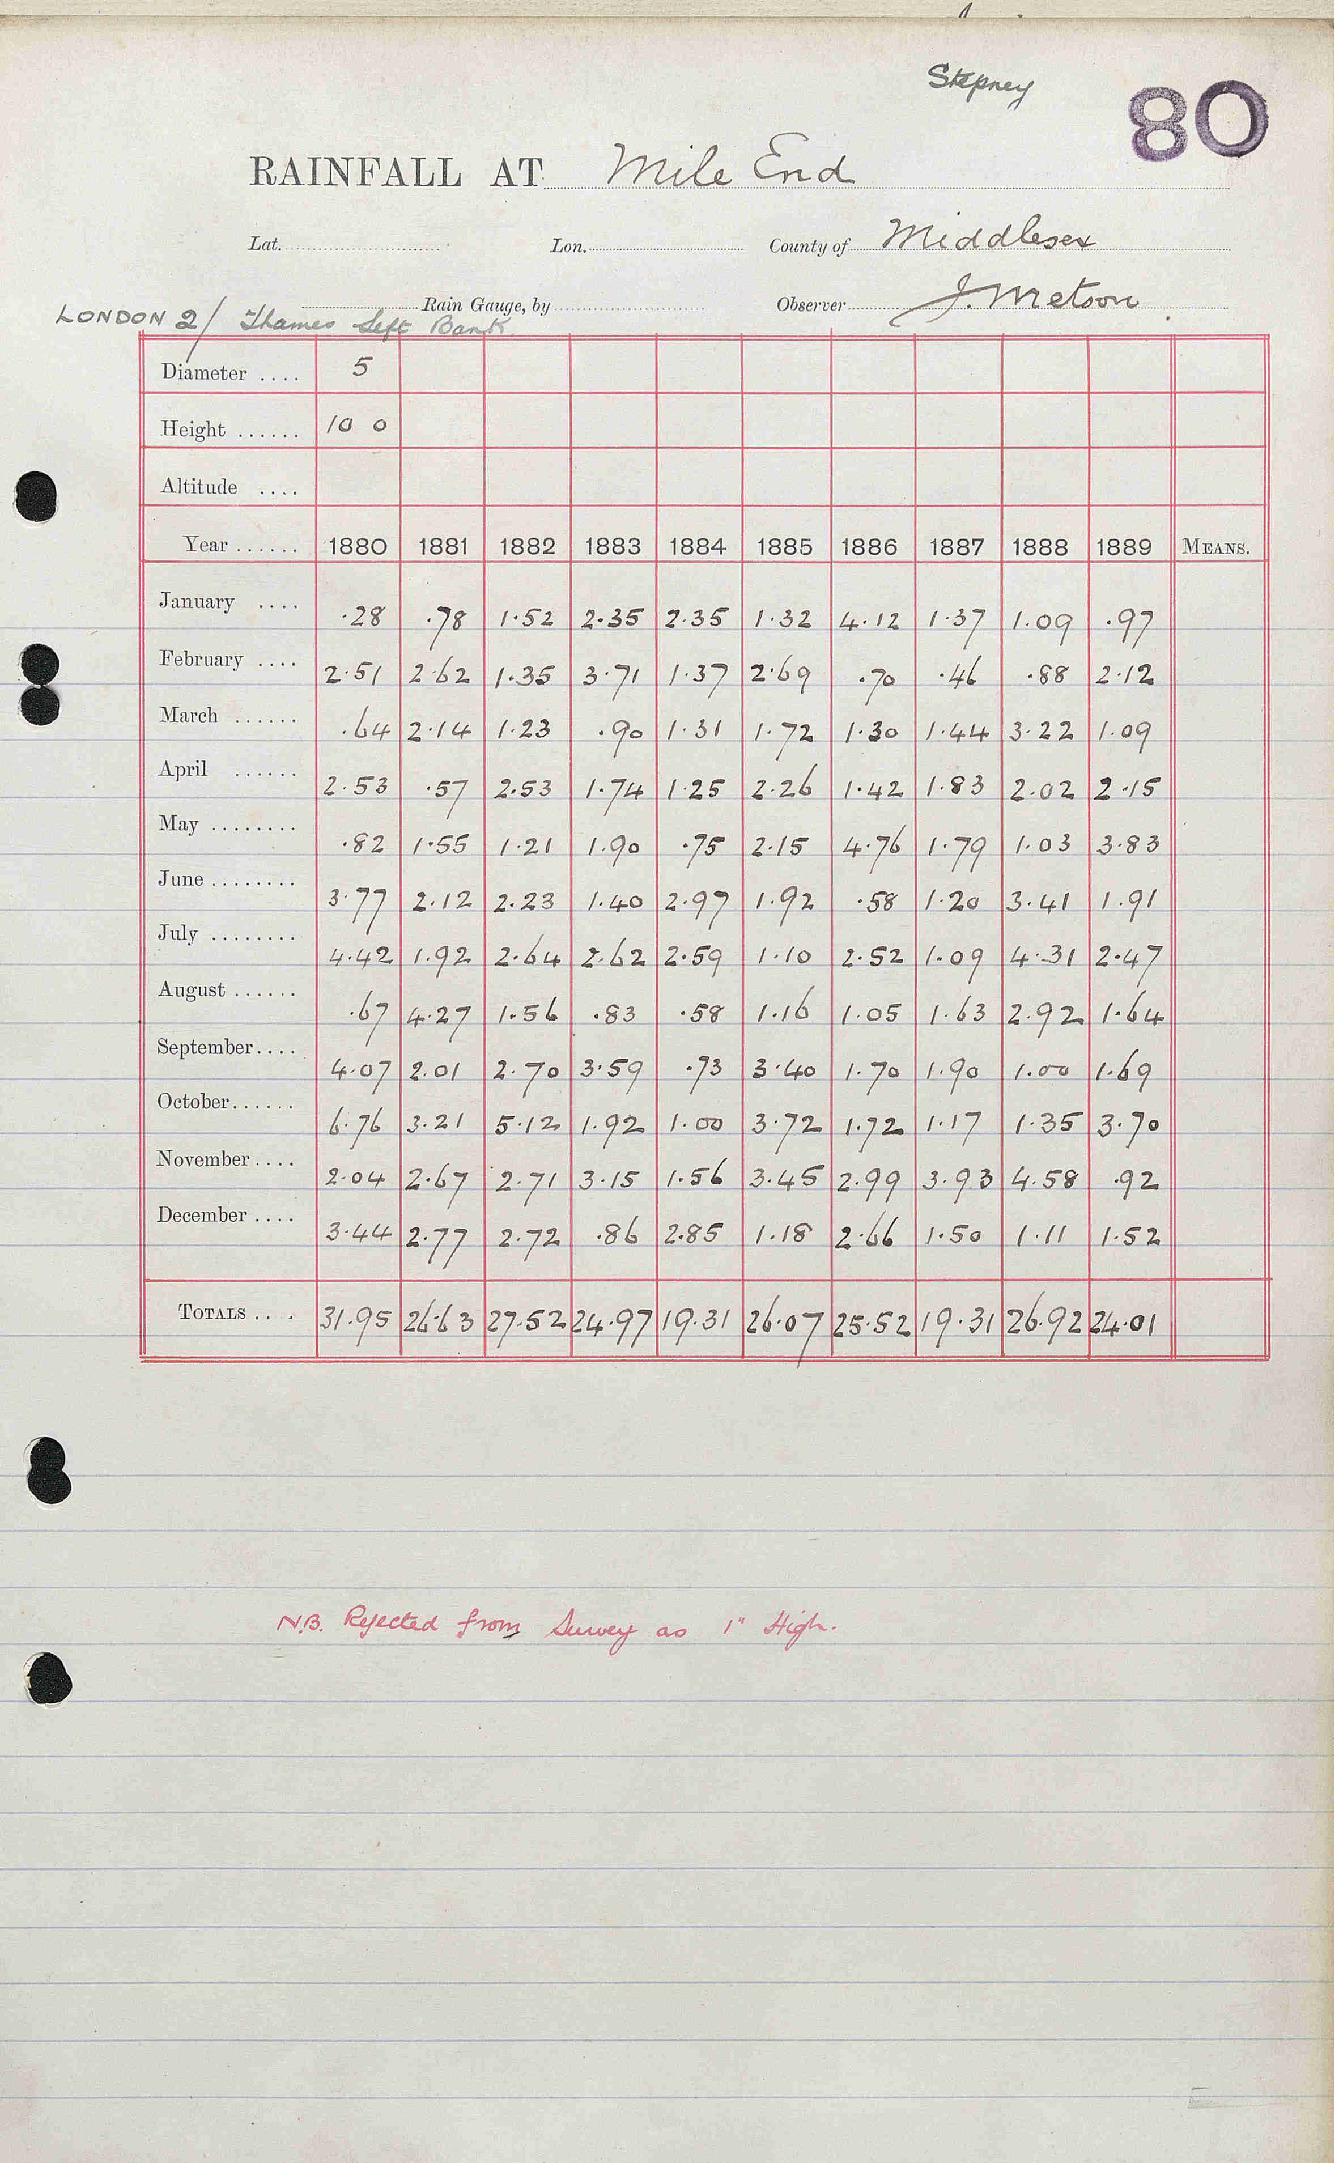 Stepney
80
RAINFALL AT Mile End
Lat. Lon. County of Middlesex
Rain Gauge, by Observer J. Metson
LONDON 2/ Thames Left Bank
Diameter .... 5
Height ...... 10 0
Altitude ....
Year ...... 1880 1881 1882 1883 1884 1885 1886 1887 1888 1889 MEANS.
January .... .28 .78 1.52 2.35 2.35 1.32 4.12 1.37 1.09 .97
February .... 2.51 2.62 1.35 3.71 1.37 2.69 .70 .46 .88 2.12
March ...... .64 2.14 1.23 .90 1.31 1.72 1.30 1.44 3.22 1.09
April ...... 2.53 .57 2.53 1.74 1.25 2.26 1.42 1.83 2.02 2.15
May ........ .82 1.55 1.21 1.90 .75 2.15 4.76 1.79 1.03 3.83
June ........ 3.77 2.12 2.23 1.40 2.97 1.92 .58 1.20 3.41 1.91
July ........ 4.42 1.92 2.64 2.62 2.59 1.10 2.52 1.09 4.31 2.47
August ...... .67 4.27 1.56 .83 .58 1.16 1.05 1.63 2.92 1.64
September.... 4.07 2.01 2.70 3.59 .73 3.40 1.70 1.90 1.00 1.69
October...... 6.76 3.21 5.12 1.92 1.00 3.72 1.72 1.17 1.35 3.70
November.... 2.04 2.67 2.71 3.15 1.56 3.45 2.99 3.93 4.58 .92
December .... 3.44 2.77 2.72 .86 2.85 1.18 2.66 1.50 1.11 1.52
TOTALS .... 31.95 26.63 27.52 24.97 19.31 26.07 25.52 19.31 26.92 24.01
N.B. Rejected from Survey as 1" High.